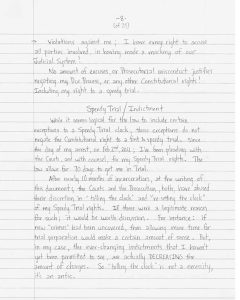 -8-
(of 25)
→ Violations against me; I have every right to accuse
all parties involved, in having made a mockery of our
Judicial System!
No amount of excuses, or Prosecutorial misconduct justifies
negating my Due Process, or any other Constitutional rights!
Including my right to a speedy trial.
Speedy Trial / Indictment
While it seems logical for the law to include certain
exceptions to a Speedy Trial clock, those exceptions do not
negate the Constitutional right to a fast & speedy trial. Since
the day of my arrest, on Feb 2021; I've been pleading with
the Courts, and with counsel, for my Speedy Trial rights. The
law allows for 70 days to get me in Trial.
After nearly 10 months of incarceration, at the writing of
this document; the Courts and the Prosecution, both, have abused
their discretion in "tolling the clock" and "re-setting the clock"
of my Speedy Trial rights. If there were a legitimate reason
for such; it would be worth discussion. For instance: if
new "crimes" had been uncovered, then allowing more time for
trial preparation would make a certain amount of sense. But,
in my case, the ever-changing indictments that I haven't
yet been permitted to see, are actually DECREASING the
amount of charges. So "tolling the clock" is not a necessity,
it's an antic.